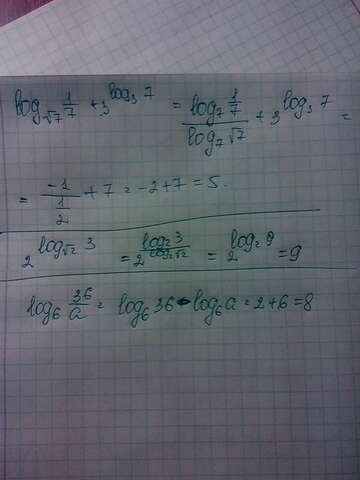 log_{√7} 1/7 + 3^{log_3 7} = (log_7 1/7)/(log_7 √7) + 3^{log_3 7} =
= -1/(1/2) + 7 = -2+7 = 5.
2^{log_{√2} 3} = 2^{(log_2 3)/(log_2 √2)} = 2^{log_2 9} = 9
log_6 36/a = log_6 36 - log_6 a = 2+6 = 8